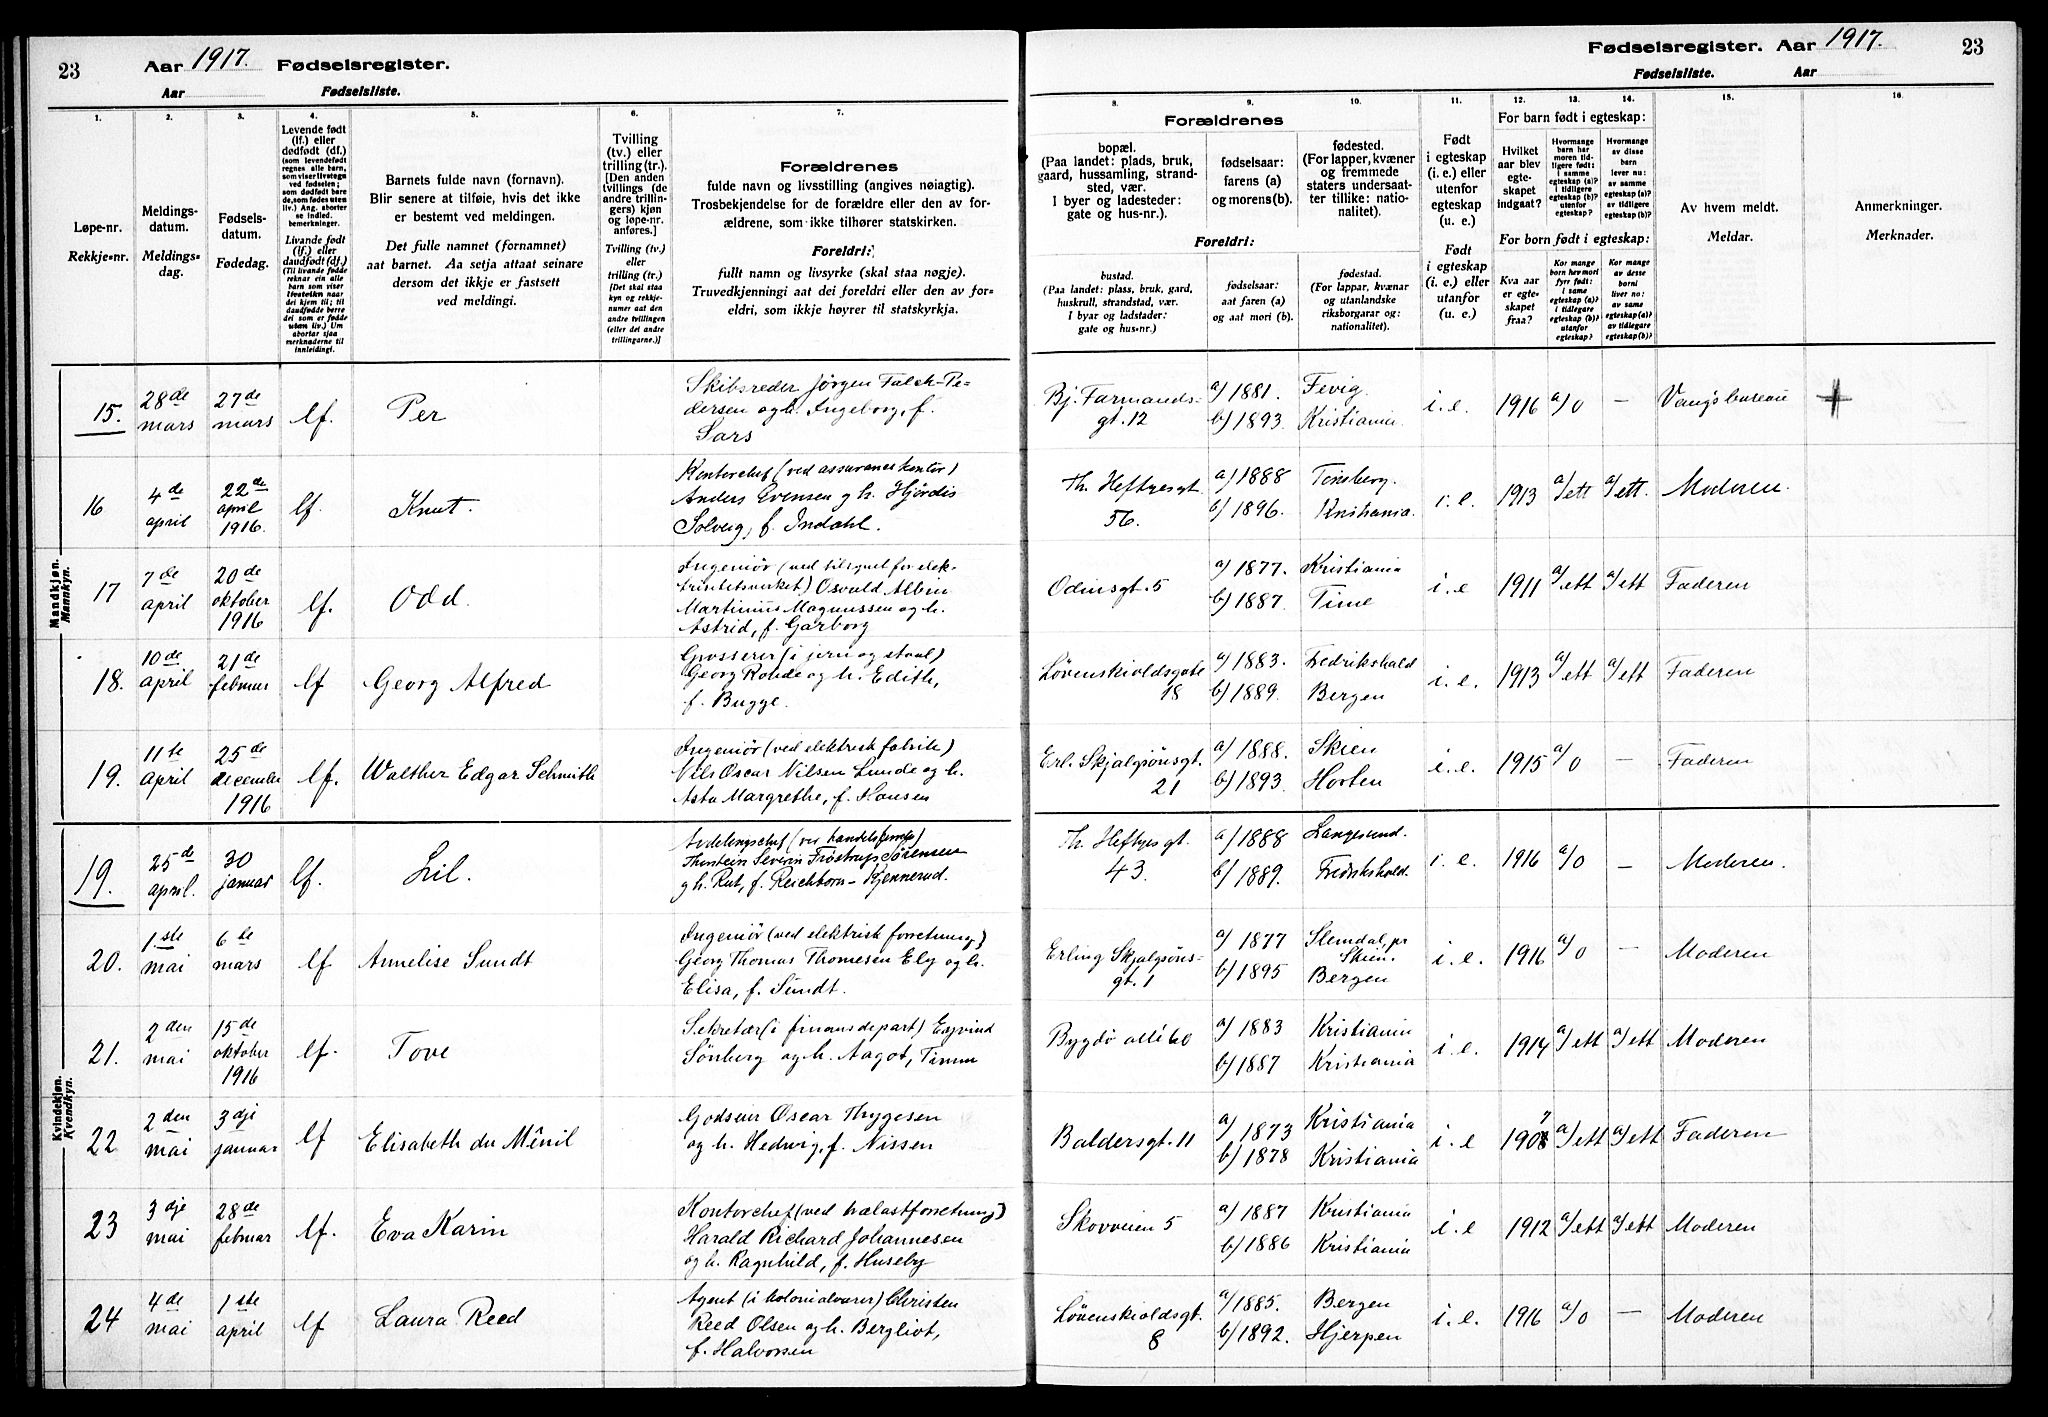 23
Aar 1917. Fødselsregister.
Aar Fødselsliste.
1.
Løpe-nr.
Rekkje-nr.
2.
Meldings-
datum.
Meldings-
dag.
3.
Fødsels-
datum.
Fødedag.
4.
Levende født
(lf.) eller
dødfødt (df.)
(som levendefødt
regnes alle barn,
som viser livstegn
ved fødselen;
som dødfødt bare
de, som fødes uten
liv.) Ang. aborter
se indled.
bemerkninger.
Livande født
(lf.) eller
daudfødt (df.)
(Til livande fødde
reknar ein alle
barn som viser
livsteikn naar
dei kjem til; til
daudfødde berre
dei som er fødde
utan liv.) Um
abortar sjaa
merknaderne til
innleidingi.
5.
Barnets fulde navn (fornavn).
Blir senere at tilføie, hvis det ikke
er bestemt ved meldingen.
Det fulle namnet (fornamnet)
aat barnet. Aa setja attaat seinare
dersom det ikkje er fastsett
ved meldingi.
6.
Tvilling
(tv.) eller
trilling (tr.).
[Den anden
tvillings (de
andre trillin-
gers) kjøn
og løpe-nr.
anføres.]
Tvilling (tv.)
eller
trilling (tr.)
[Det skal staa
kyn og rekkje-
numer aat den
andre tvillingen
(eller dei andre
trillingarne.)]
7.
Forældrenes
fulde navn og livsstilling (angives nøiagtig).
Trosbekjendelse for de forældre eller den av for-
ældrene, som ikke tilhører statskirken.
Foreldri:
fullt namn og livsyrke (skal staa nøgje).
Truvedkjenningi aat dei foreldri eller den av for-
eldri, som ikkje høyrer til statskyrkja.
Mandkjøn.
Mannkyn.
15. 28de mars 27de mars lf. Per Skibsreder Jørgen Falck-Pe-
dersen og h. Ingeborg, f.
Sars
16 4de april 22de april 1916. lf. Knut. Kontorchef (ved assurancekontor)
Anders Evensen og h. Hjördis
Solveig, f. Indahl.
17 7de april 20de oktober 1916 lf. Odd. Ingeniør (ved tilsynet for elek-
tricitetsverket) Osvald Albin
Martinius Magnussen og h.
Astrid, f. Garborg
18. 10de april 21de februar lf Georg Alfred Grosserer (i jern og staal)
Georg Rohde og h. Edith,
f. Bugge.
19. 11te april 25de december 1916 lf. Walther Edgar Schmith Ingeniør (ved elektrisk fabrik)
Nils Oscar Nilsen Lunde og h.
Asta Margrethe, f. Hansen
Kvindekjøn.
Kvendkyn.
19. 25de april. 30 januar lf. Lil. Avdelingschef (ved handelsfirma)
Thorstein Severin Trøstrup Sørensen
og h. Rut, f. Reichborn-Kjennerud.
20. 1.ste mai 6te mars lf Annelise Sundt Ingeniør (ved elektrisk forretning)
Georg Thomas Thomesen Ely og h.
Elisa, f. Sundt.
21. 2den mai 15de oktober 1916 lf. Tove Sekretær (i finansdepart) Eyvind
Sønberg og h. Aagot, Timm
22 2den mai 3dje januar lf Elisabeth du Mênil Godseier Oscar Thygesen
og h. Hedwig, f. Nissen
23 3dje mai 28de februar lf. Eva Karin Kontorchef (ved trælastforretning)
Harald Richard Johannesen
og h. Ragnhild, f. Huseby
24 4de mai 1ste april lf Laura Reed Agent (i kolonialvarer) Christen
Reed Olsen og h. Bergliot,
f. Halvorsen
Fødselsregister. Aar 1917. 23
Fødselsliste. Aar
8.
Forældrenes
bopæl.
(Paa landet: plads, bruk,
gaard, hussamling, strand-
sted, vær.
I byer og ladesteder:
gate og hus-nr.).
Foreldri:
bustad.
(Paa landet: plass, bruk, gard,
huskrull, strandstad, vær.
I byar og ladstader:
gate og hus-nr.)
9.
fødselsaar:
farens (a)
og morens(b).
fødselsaar:
aat faren (a)
og aat mori (b).
10.
fødested.
(For lapper, kvæner
og fremmede
staters undersaat-
ter tillike: natio-
nalitet).
fødestad.
(For lappar, kvænar
og utanlandske
riksborgarar og:
nationalitet).
11.
Født
i egteskap
(i. e.) eller
utenfor
egteskap
(u. e.)
Født
i egteskap
(i. e.) eller
utanfor
(u. e.)
For barn født i egteskap:
12.
Hvilket
aar blev
egte-
skapet
indgaat?
13.
Hvormange
barn har
moren tid-
ligere født:
i samme
egteskap (a)?
i tidligere
egteskap (b)?
utenfor
egteskap?
14.
Hvormange
av disse
barn
lever nu:
av samme
egteskap (a)?
av tidligere
egteskap (b)?
For born født i egteskap:
Kva aar
er egte-
skapet
fraa?
Kor mange
born hev mori
fyrr født:
i same
egteskap (a)?
i tidlegare
egteskap (b)?
utanfor
egteskap?
Kor mange
av desse
borni
liver no:
av same
egteskap (a)?
av tidlegare
egteskap (b)?
15.
Av hvem meldt.
Meldar.
16.
Anmerkninger.
Merknader.
Bj. Farmands-
gt. 12 a/ 1881. b/ 1893. Fevig Kristiania. i. e. 1916 a/0 — Vangsbureau +
Th. Heftyesgt.
56. a/ 1888 b/ 1896. Tønsberg. Kristiania. i. e. 1913 a/ett a/ett. Moderen.
Odinsgt. 5 a/ 1877. b/ 1887. Kristiania Time i. e 1911 a/ett a/ett Faderen
Løvenskioldsgate
18 a/ 1883. b/ 1889. Fredrikshald Bergen i. e. 1913 a/ett a/ett Faderen
Erl. Skjalgsønsgt.
21 a/ 1888. b/ 1893. Skien Horten i. e. 1915 a/0 — Faderen
Th. Heftyesgt.
43. a/ 1888 b/ 1889. Langesund. Fredrikshald. i. e. 1916 a/0 — Moderen.
Erling Skjalgsøns-
gt. 1 a/ 1877 b/ 1895 Slemdal pr Skien. Bergen i. e. 1916 a/0 — Moderen
Bygdø allé 60 a/ 1883 b/ 1887 Kristiania Kristiania i. e. 1914 a/ett a/ett Moderen
Baldersgt. 11 a/ 1873 b/ 1878 Kristiania Kristiania i. e 1907 a/ett a/ett Faderen
Skovveien 5 a/ 1887 b/ 1886 Kristiania Kristiania i. e 1912 a/ett a/ett Moderen
Løvenskioldsgt.
8 a/ 1885. b/ 1892. Bergen Hjerpen i. e. 1916 a/0 — Moderen